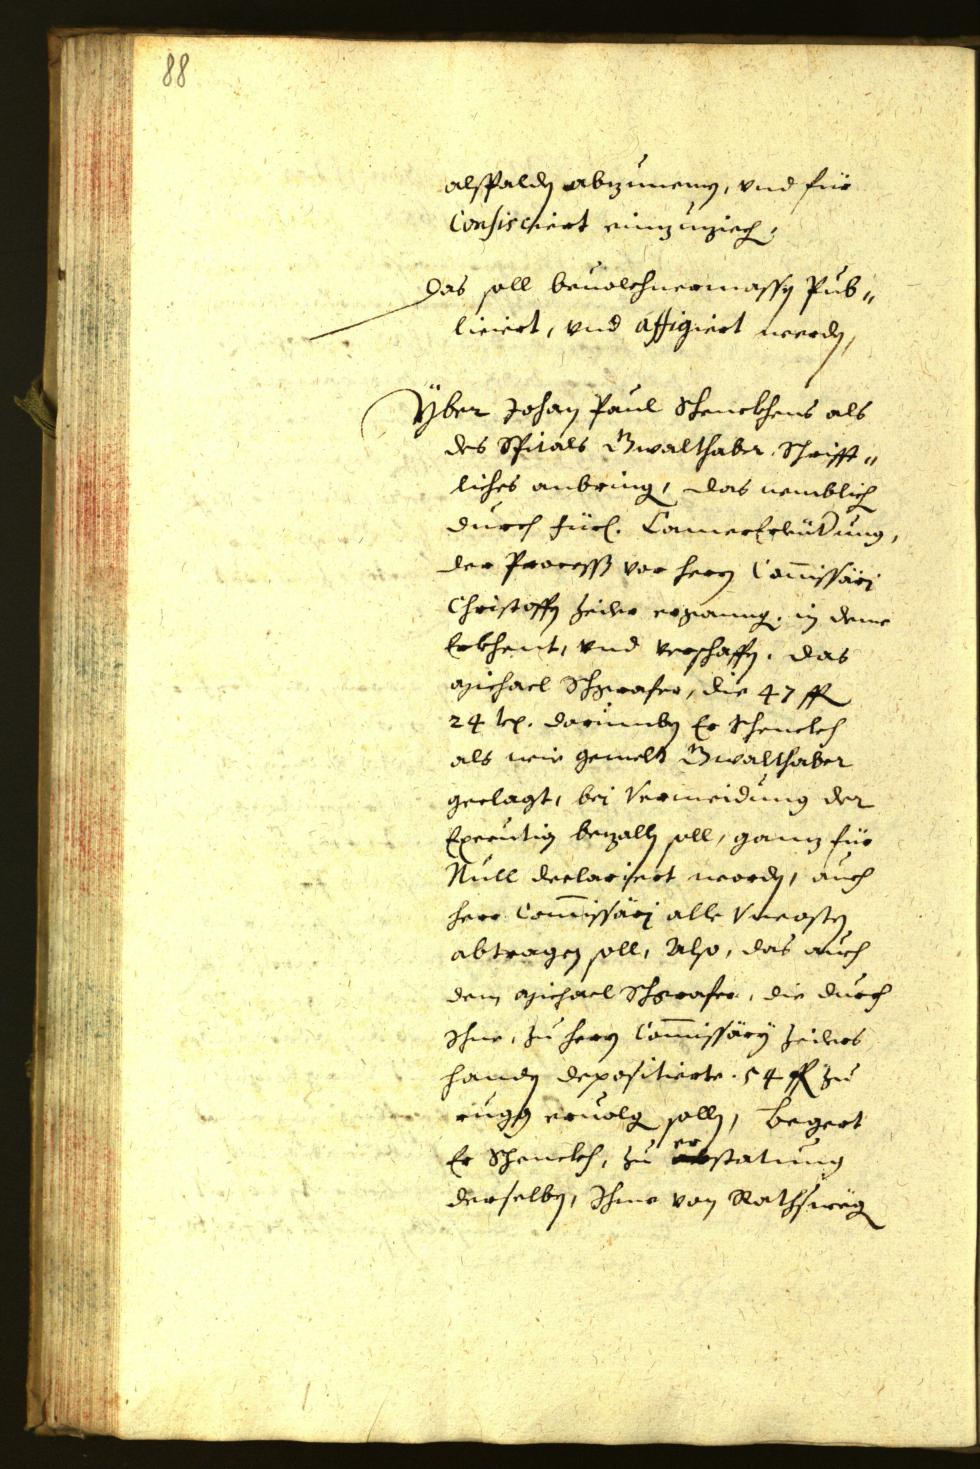 88
alßbalden abzunemen, vnd für
Confisciert einzuziech.
Das soll beuolchnermassen Pub„
liciert, vnd affigiert werden,
Yber Johan Paul Schenckhens als
des Spitals Gwalthaber Schrifft„
liches anbring, das nemblich
durch fürl. CamerErleüttung,
der Process vor herrn Comissarj
Christoffen Zeiler ergangen, in deme
Erkhent, vnd verschaffen, das
Michael Schgrafer, die 47 fl
24 kr. darumben Er Schenckh
als wie gemelt Gwalthaber
geclagt, bej Vermeidung der
Execution bezallen soll, ganz für
Null declariert worden, auch
herr Comissarj alle Vncosten
abtragen soll, Also, das auch
dem Michael Schgrafer, die durch
Ihne, zu herrn Comissary Zeilers
handen depositierte 54 fl zu
rugg eruolgen sollen, Begert
Er Schenckh, zu erstatung
derselben, Ihme von Rathsweg